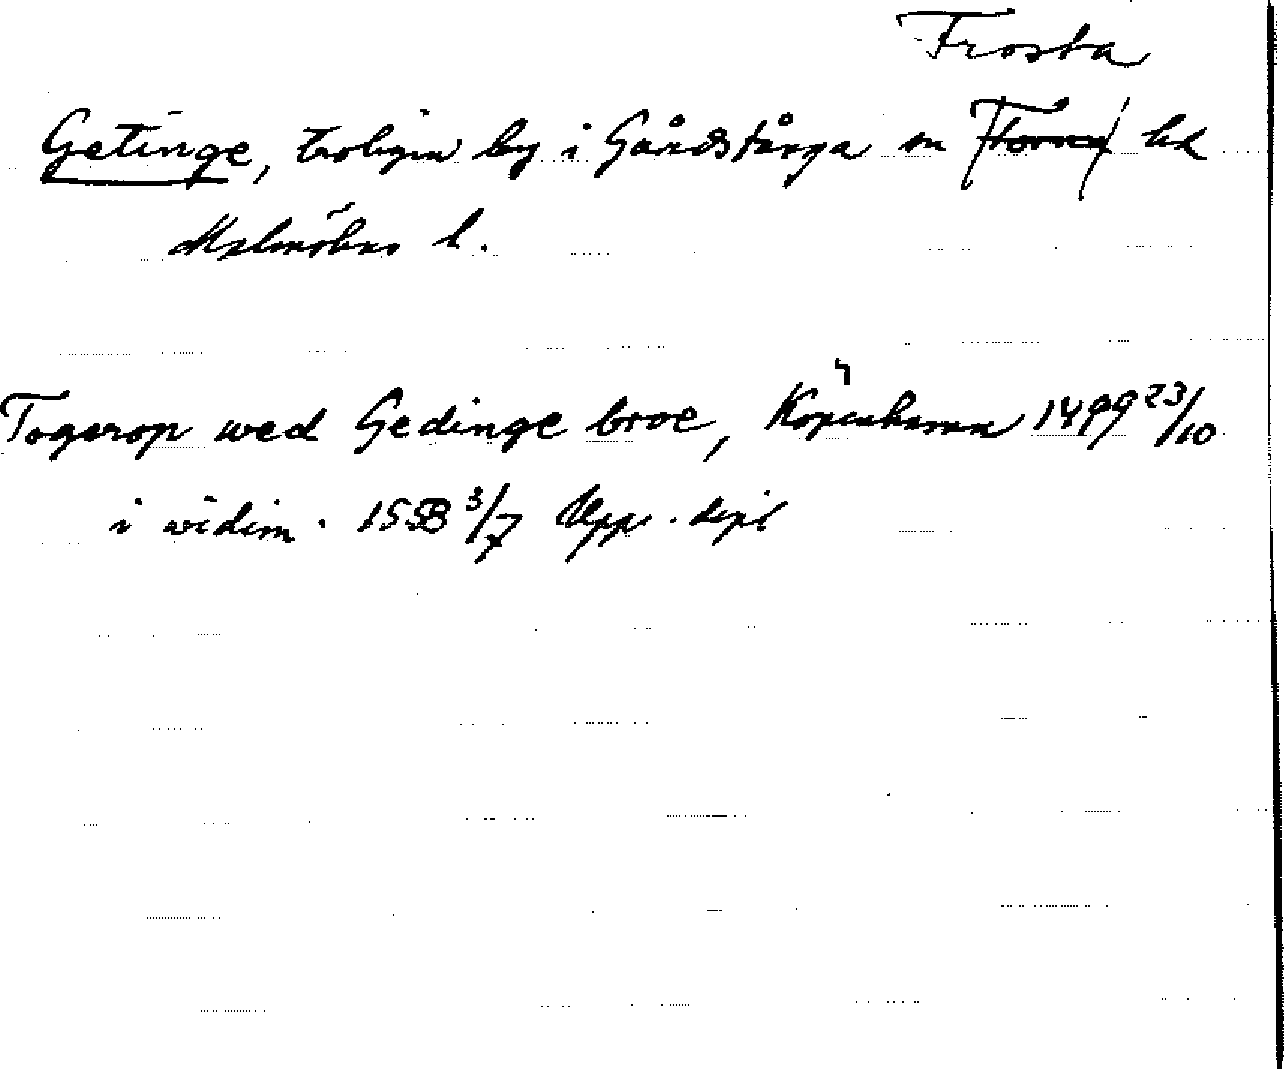 Frosta
Getinge, troligen by i Gårdstånga sn Torna hd
Malmöhus l.
Togerop wed Gedinge broe, Köpenhamn 1499 23/10
i vidim. 1558 3/7 Upps. dipl